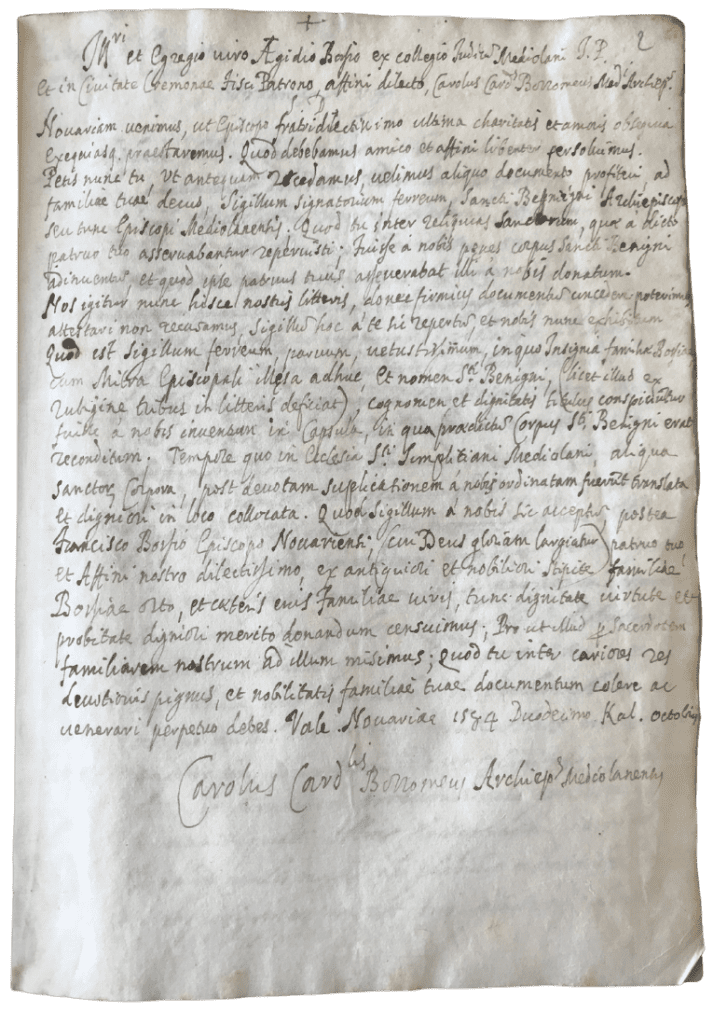 +
2
M^ri et Egragio viro Ægidio Bossio ex collegio Judicũ Mediolani J. P.
et in Civitate Cremonae Fisci Patrono, affini dilecto, Carolus Card^s Borromeus Med^i Archiep^s.
Novariam venimus, ut Episcopo fratri dilectissimo ultima charitatis et amoris obsequia
exequiasq. praestaremus. Quod debebamus amico et affini libenter persolvimus.
Petis nunc tu, ut antequam recedamus, velimus aliquo documento profiteri, ad
familiae tuae decus, Sigillum signatorium ferreum, Sancti Benigni Archiepiscopi
seu tunc Episcopi Mediolanensis. Quod tu inter reliquias Sanctorum, quae á dicto
patruo tuo asservabantur reperuisti; Fuisse á nobis penes corpus Sancti Benigni
adinventũ, et quod ipse patruus tuus asseverabat illi á nobis donatum.
Nos igitur nunc hisce nostris litteris, donec firmius documentũ concedere poterimus,
attestari non recusamus, Sigillũ hoc á te sic repertũ, et nobis nunc exhibitum
Quod est Sigillum ferreum, parvum, vetustissimum, in quo Insignia familiae Bossiae
cum Mitra Episcopali illesa adhuc, et nomen S^ti Benigni, (licet illud ex
rubigine tribus in litteris deficiat) cognomen et dignitatis titulus conspiciuntur
fuisse á nobis inventum in Capsula, in qua praedictũ Corpus S^ti Benigni erat
reconditum. Tempore quo in Ecclesia S^ti Simplitiani Mediolani, aliqua
sanctorũ Corpora, post devotam suplicationem á nobis ordinatam fuerũt translata
et digniori in loco collocata. Quod Sigillum á nobis sic acceptũ postea
Francisco Bossio Episcopo Novariensi, (cui Deus gloriam largiatur) patruo tuo,
et Affini nostro dilectissimo, ex antiquiori et nobiliori stipite familiae
Bossiae orto, et caeteris eius Familiae viris, tunc dignitate virtute et
probitate digniori merito donandum censuimus; Pro ut illud p sacerdotem
familiarem nostrum ad illum misimus; Quod tu inter cariores res
devotionis pignus, et nobilitatis familiae tuae documentum colere ac
venerari perpetuo debes. Vale. Novariae 1584 Duodecimo Kal. octobris
Carolus Card^lis Borromeus Archiep^s Mediolanensis